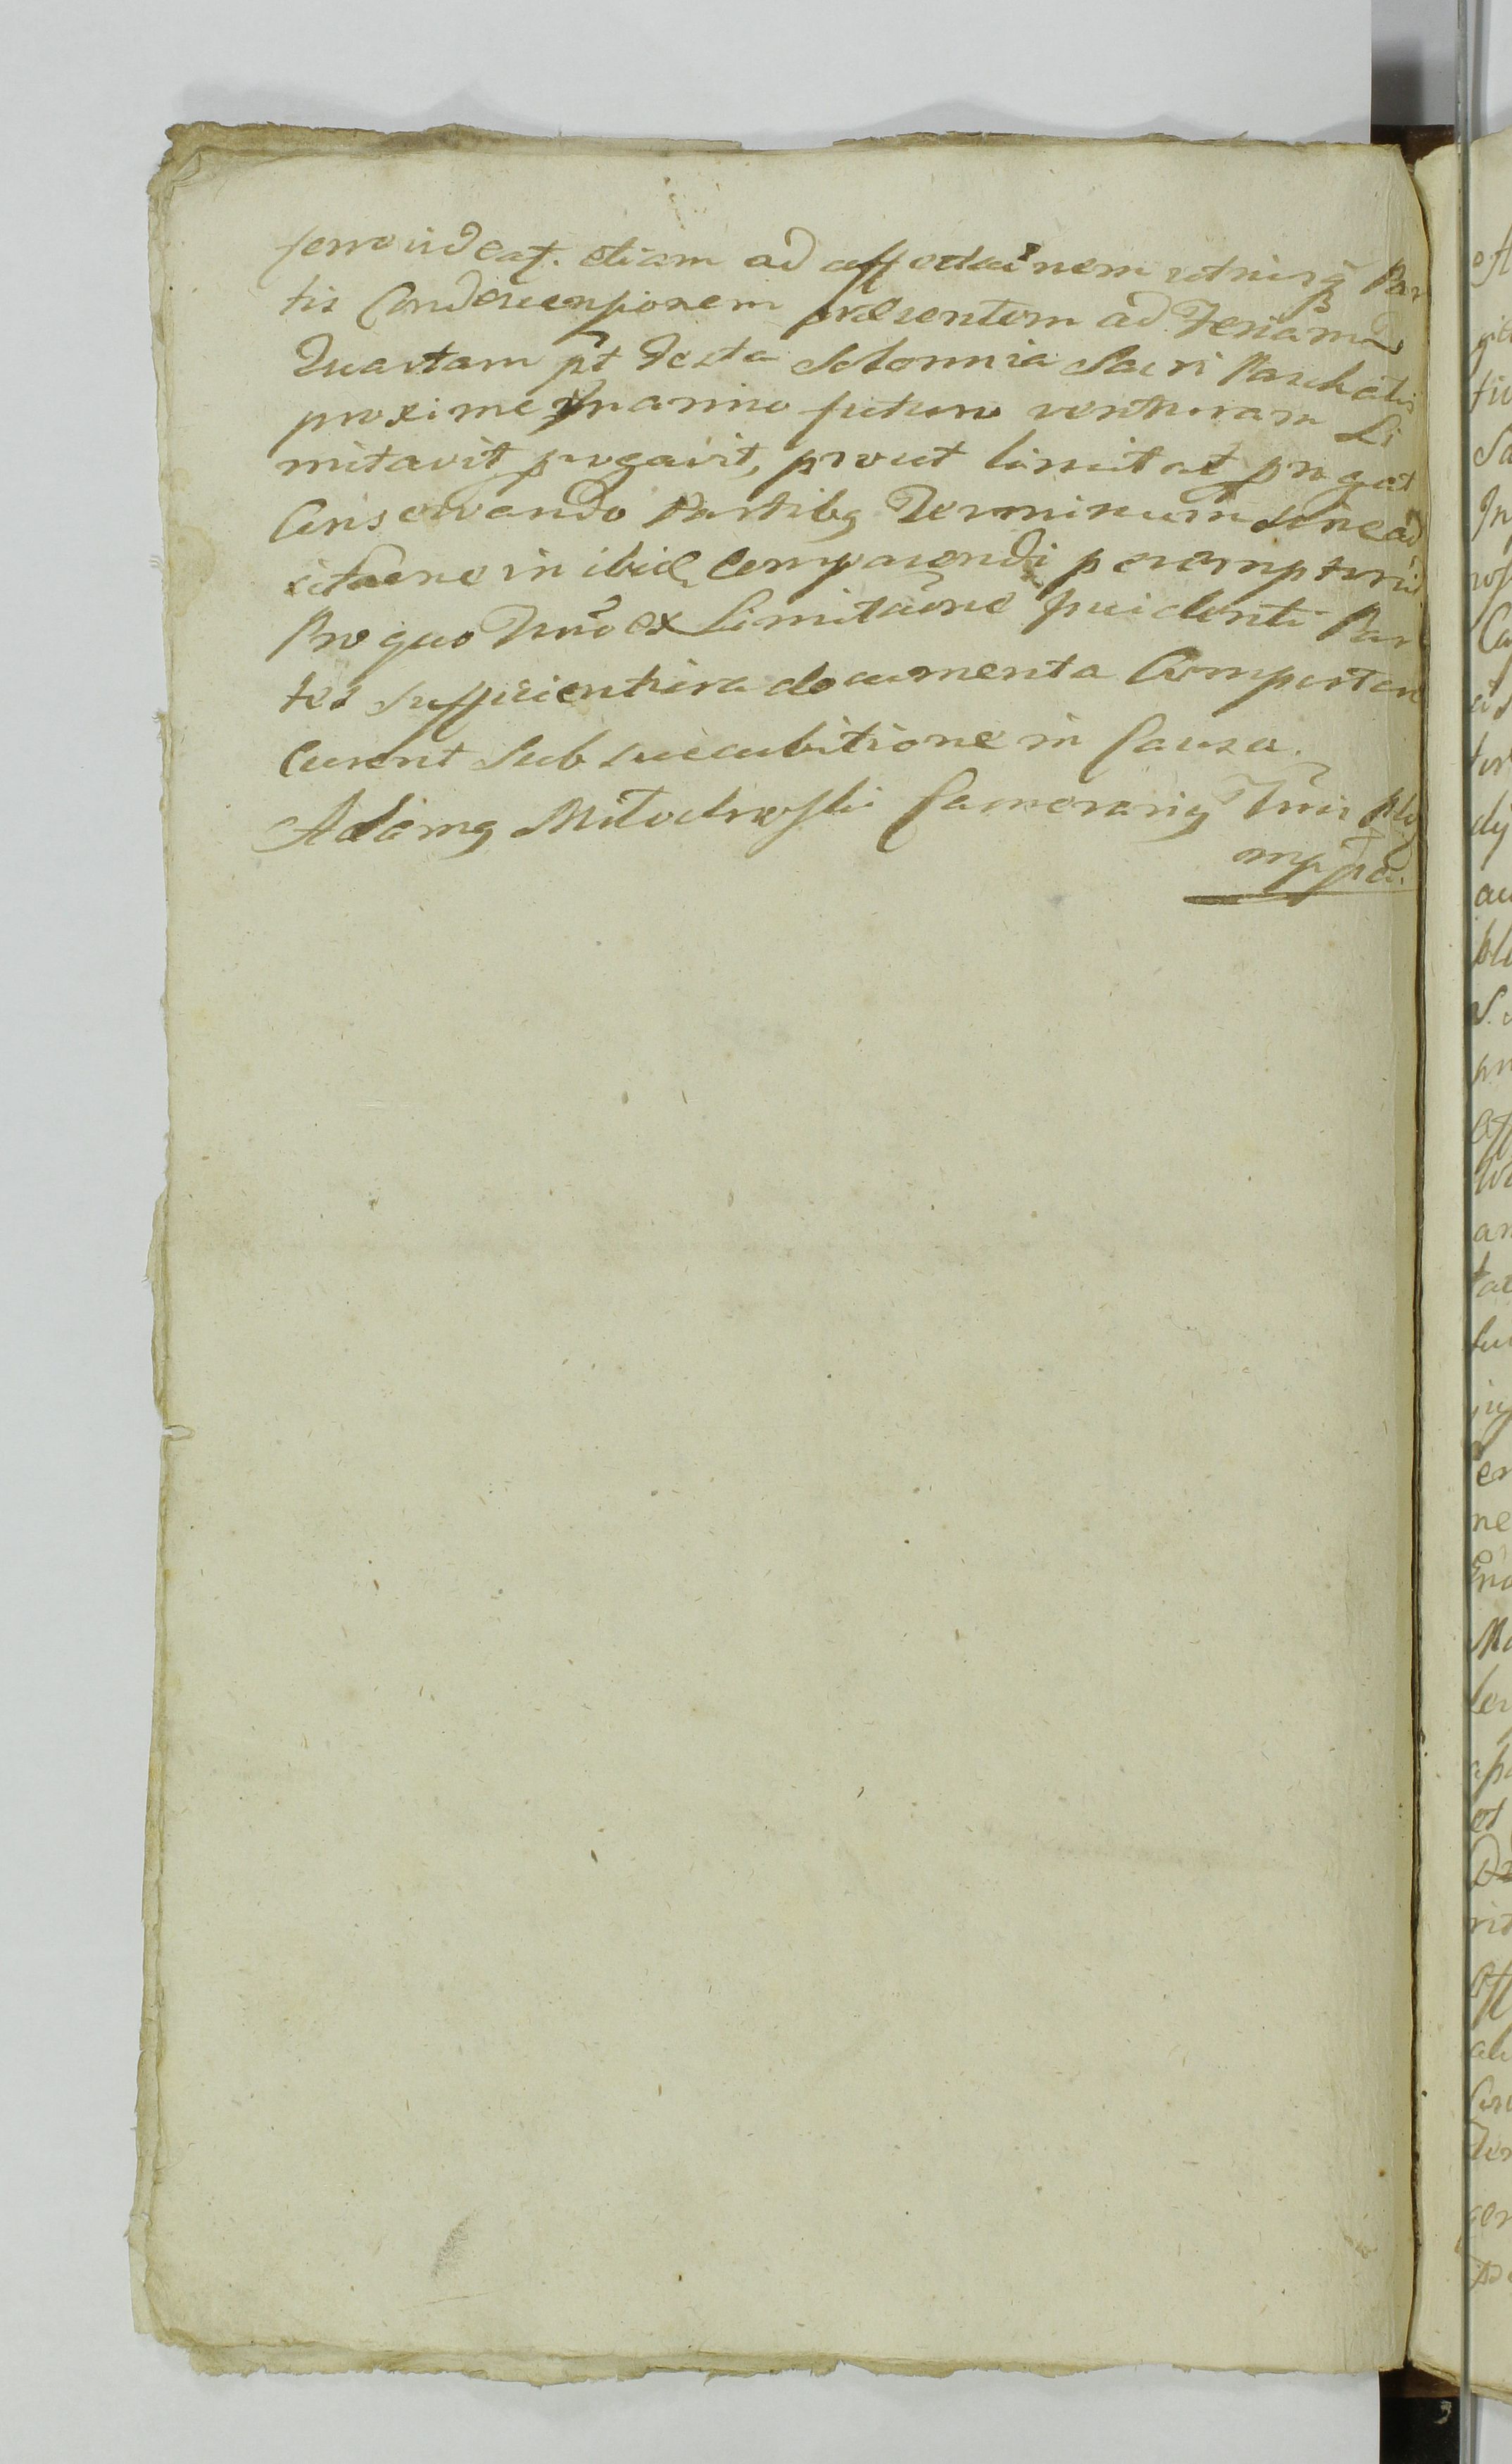 etiam ad affectãonem utriusq Par
tis Condescensionem praesentem ad Feriam
Quartam pt Festa Solennia Sacri Paschatis
proxime in anno futuro venturam Li
mitavit prngavit, prout limitat prngat
Conservando Partibq Terminum sine ad
citaõne in ibid. Comparendi peremptoriũ
Pro quo Tnno ex Limitaõne incidenti Par
tes sufficientiora documenta Comportare
Curent Sub succubitione in Causa.
Adamq Miłachowski Camerariq Trris
mppa.